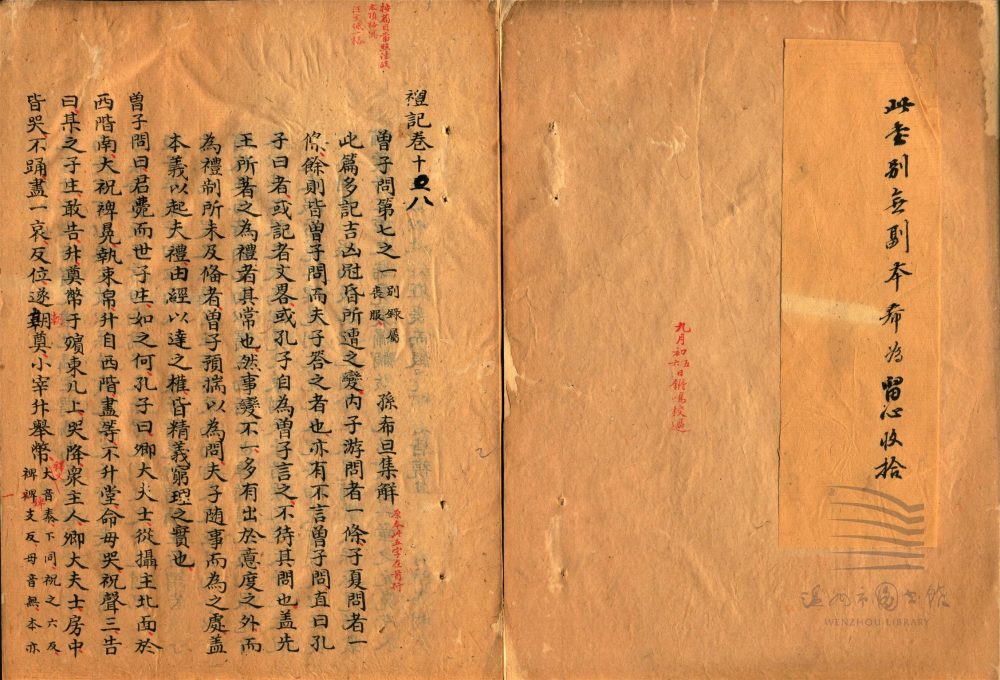 此書別無副本希為留心收拾
九月初五
六日鏘鳴校過
溫州市圖書館
WENZHOU LIBRARY
禮記卷十八
曾子問第七之一 別錄屬喪服 孫希旦集解
此篇多記吉凶冠昏所遭之變內子游問者一條子夏問者一
條餘則皆曾子問而夫子答之者也亦有不言曾子問直曰孔
子曰者或記者文畧或孔子自為曾子言之不待其問也蓋先
王所著之為禮者其常也然事變不一多有出於意度之外而
為禮制所未及備者曾子預揣以為問夫子隨事而為之處蓋
本義以起夫禮由經以達之權皆精義窮理之實也
曾子問曰君薨而世子生如之何孔子曰卿大夫士從攝主北面於
西階南大祝裨冕執束帛升自西階盡等不升堂命毋哭祝聲三告
曰某之子生敢告升奠幣于殯東几上哭降眾主人卿大夫士房中
皆哭不踊盡一哀反位遂朝奠小宰升舉幣 大音泰下同祝之六反
裨婢支反毋音無本亦